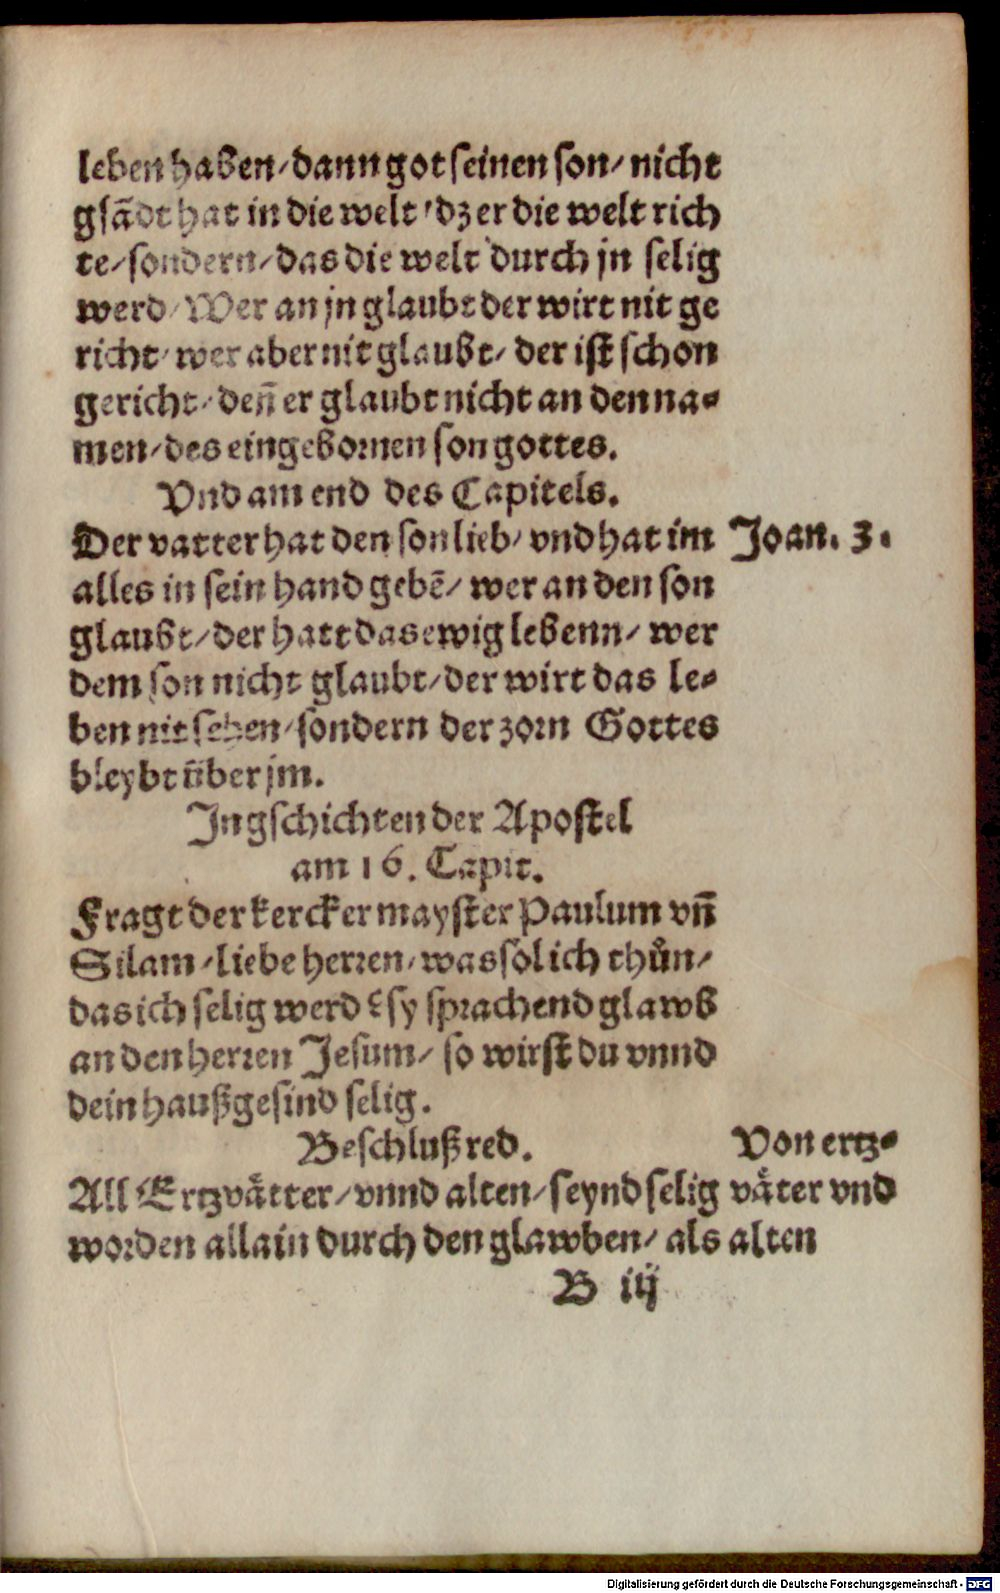 leben haben/ dann got seinen son/ nicht
gsãdt hat in die welt/ dz er die welt rich
te/ sondern/ das die welt durch jn selig
werd/ Wer an jn glaubt der wirt nit ge
richt/ wer aber nit glaubt/ der ist schon
gericht/ deñ er glaubt nicht an den na-
men/ des eingebornen son gottes.
Vnd am end des Capitels.
Der vatter hat den son lieb/ vnd hat im
Joan. 3.
alles in sein hand gebẽ/ wer an den son
glaubt/ der hatt das ewig lebenn/ wer
dem son nicht glaubt/ der wirt das le-
ben nit sehen/ sondern der zorn Gottes
bleybt über jm.
In gschichten der Apostel
am 16. Capit.
Fragt der kercker mayster Paulum vñ
Silam/ liebe herren/ was sol ich thůn/
das ich selig werd? sy sprachend glawb
an den herren Jesum/ so wirst du vnnd
dein haußgesind selig.
Beschlußred.
All Ertzvåtter/ vnnd alten/ seynd selig
worden allain durch den glawben/ als
Von ertz-
våter vnd
alten
B iij
Digitalisierung gefördert durch die Deutsche Forschungsgemeinschaft - DFG